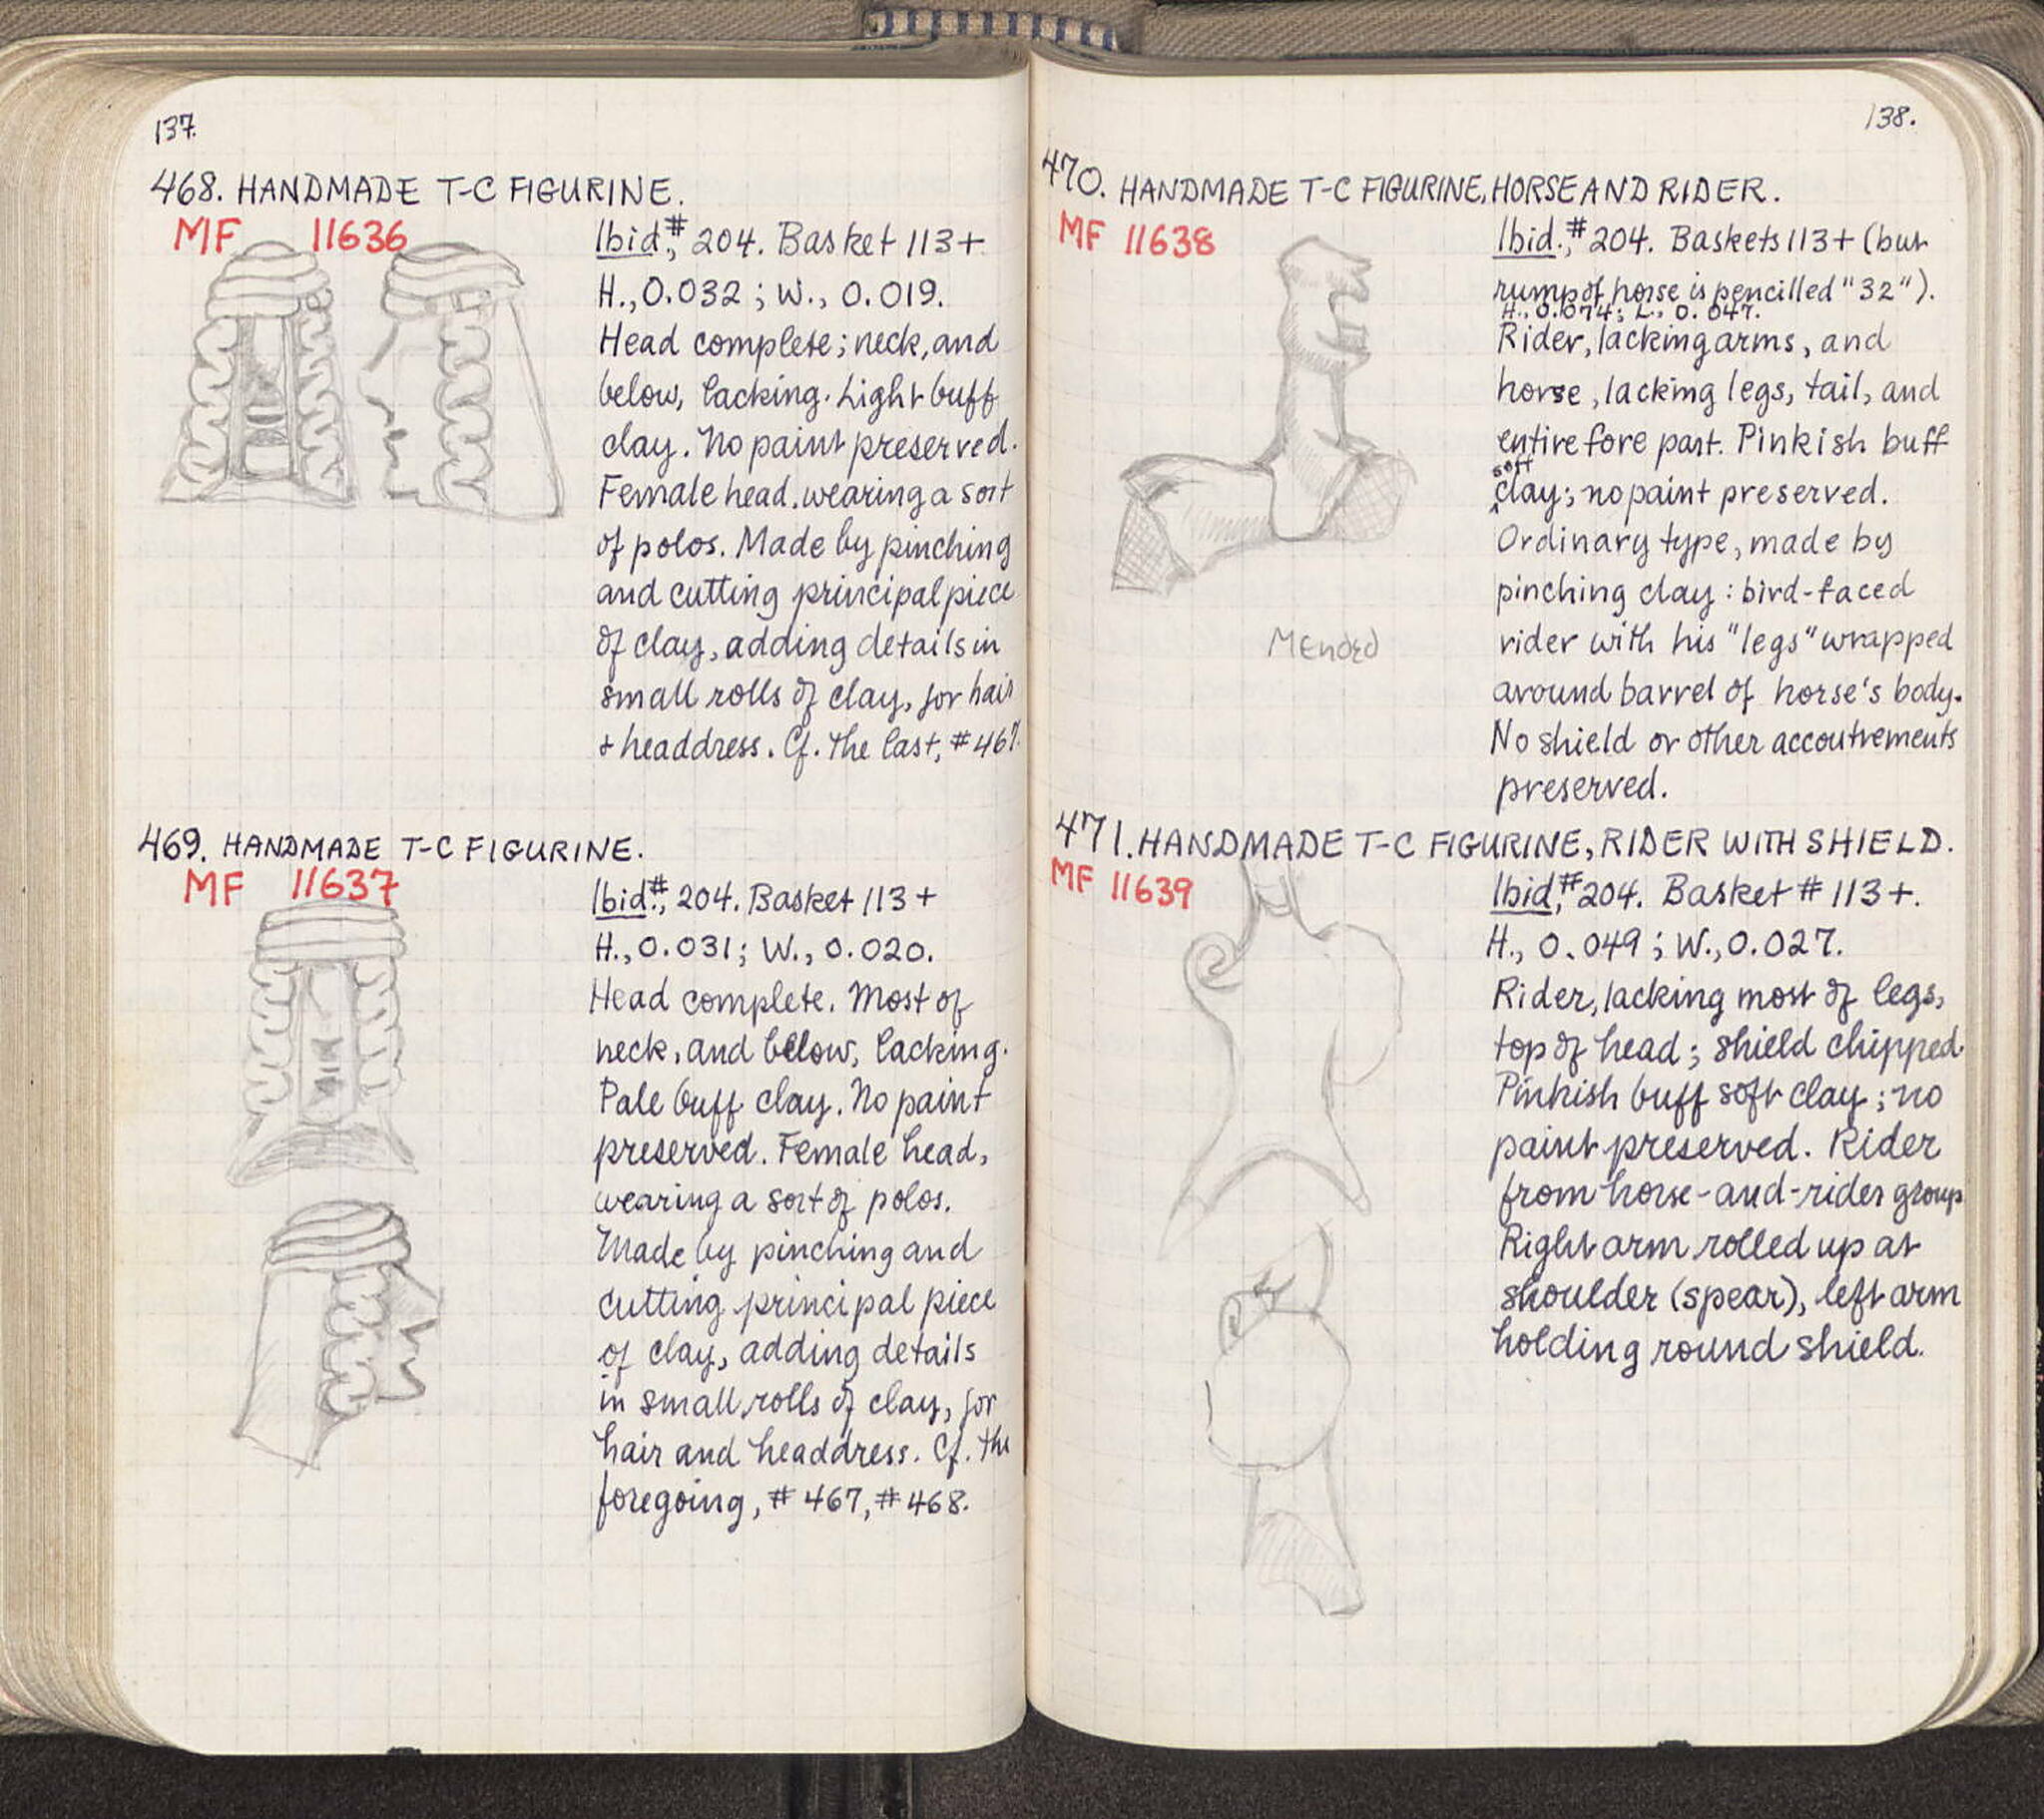 137.
468. HANDMADE T-C FIGURINE.
MF 11636
Ibid., # 204. Basket 113+
H., 0.032; W., 0.019.
Head complete; neck, and
below, lacking. Light buff
clay. No paint preserved.
Female head, wearing a sort
of polos. Made by pinching
and cutting principal piece
of clay, adding details in
small rolls of clay, for hair
+ headdress. Cf. the last, #467.
469. HANDMADE T-C FIGURINE.
MF 11637
Ibid., # 204. Basket 113+
H., 0.031; W., 0.020.
Head complete. Most of
neck, and below, lacking.
Pale buff clay. No paint
preserved. Female head,
wearing a sort of polos.
Made by pinching and
cutting principal piece
of clay, adding details
in small rolls of clay, for
hair and headdress. Cf. the
foregoing, # 467, # 468.
138.
470. HANDMADE T-C FIGURINE, HORSE AND RIDER.
MF 11638
Ibid., # 204. Baskets 113+ (but
rump of horse is pencilled "32").
H., 0.074; L., 0.047.
Rider, lacking arms, and
horse, lacking legs, tail, and
entire fore part. Pinkish buff
soft
clay; no paint preserved.
Ordinary type, made by
pinching clay: bird-faced
rider with his "legs" wrapped
around barrel of horse's body.
No shield or other accoutrements
preserved.
Mended
471. HANDMADE T-C FIGURINE, RIDER WITH SHIELD.
MF 11639
Ibid., # 204. Basket # 113+.
H., 0.049; W., 0.027.
Rider, lacking most of legs,
top of head; shield chipped.
Pinkish buff soft clay; no
paint preserved. Rider
from horse-and-rider group.
Right arm rolled up at
shoulder (spear), left arm
holding round shield.